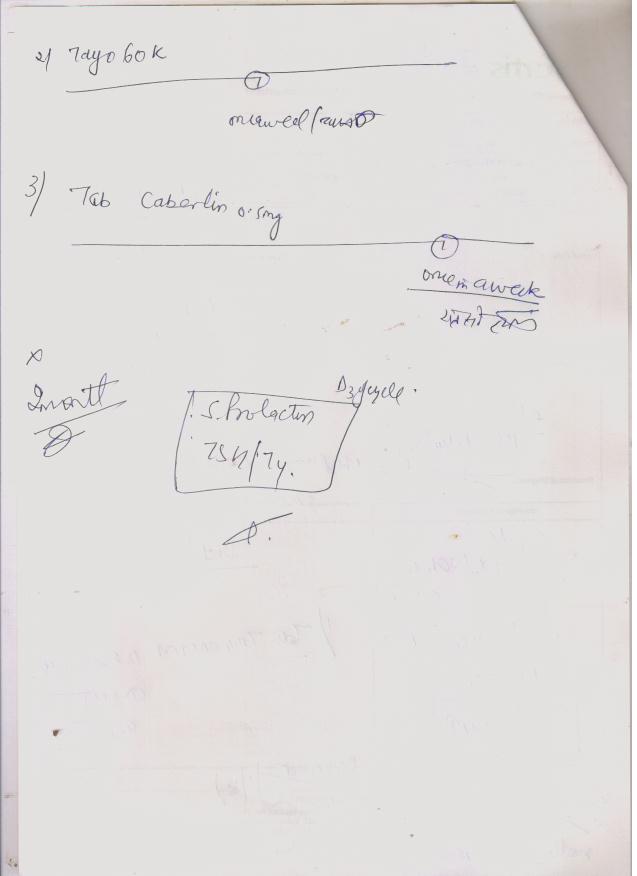 2) Tayo 60K
1
once a week /
3) Tab Caberlin 0.5mg
1
once in a week
x
2 month
D3 of cycle.
S. Prolactin
TSH/T4.